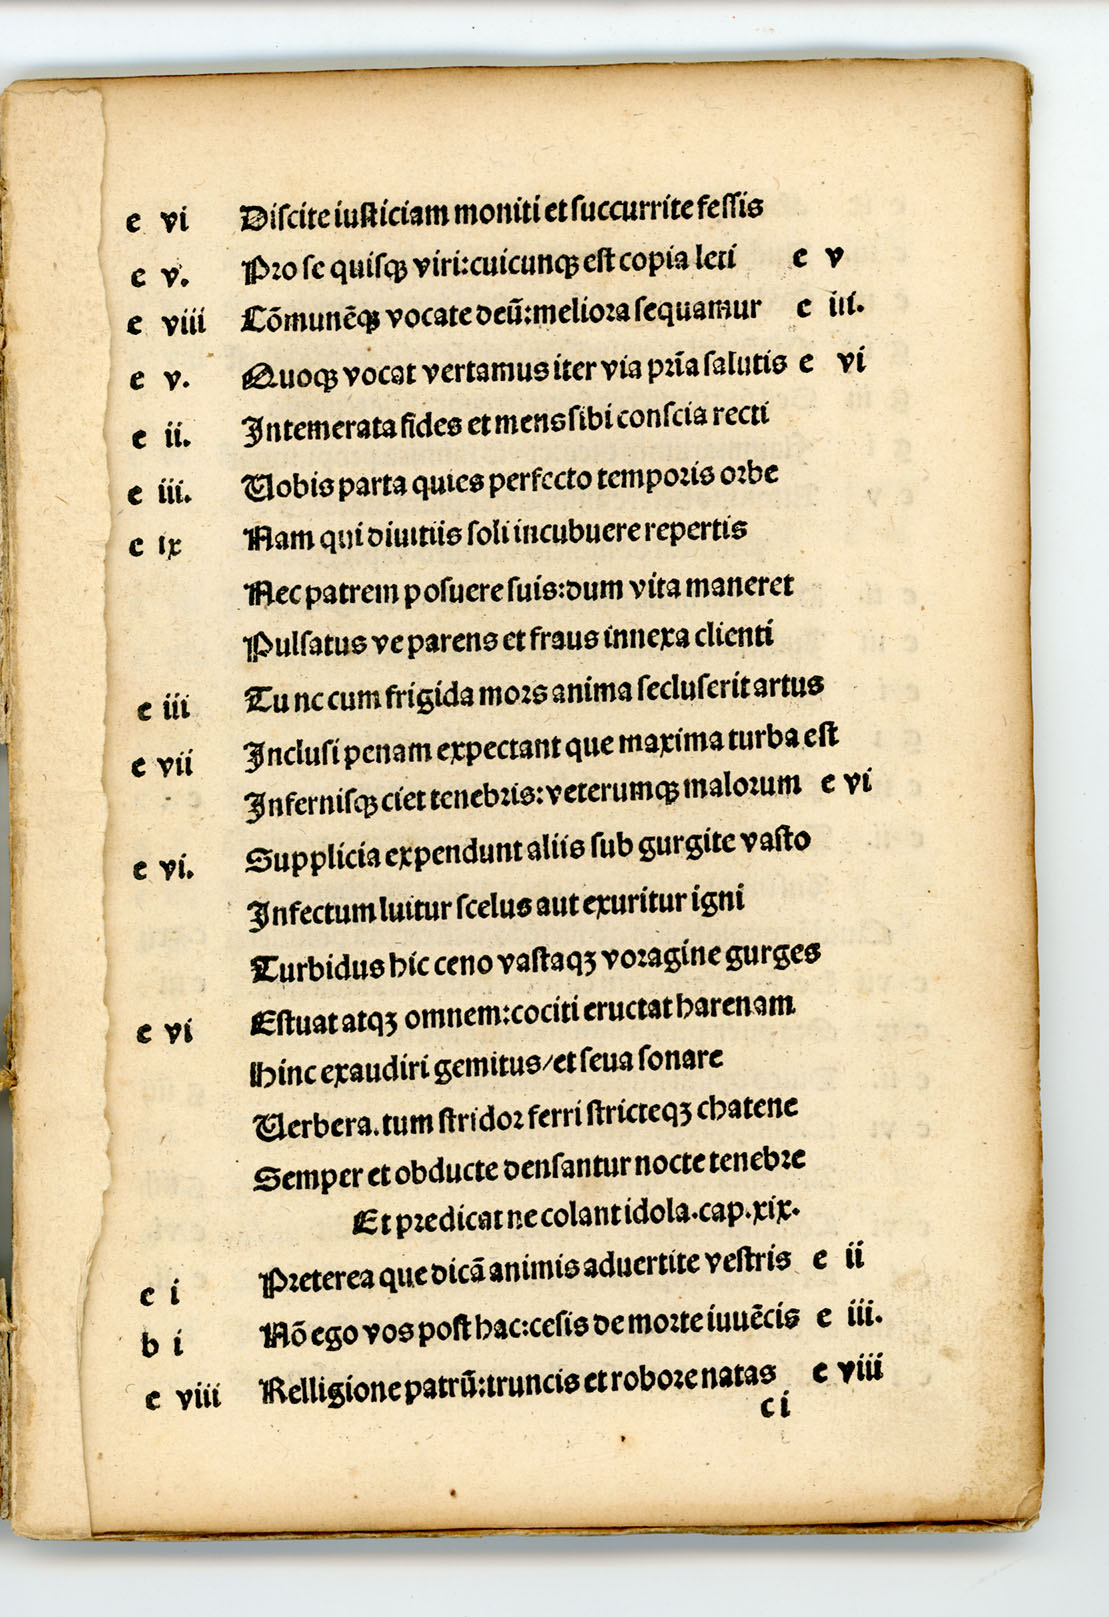 e vi Diſcite iuſticiam moniti et ſuccurrite feſſis
e v. Pro ſe quiſqꝫ viri:cuicunqꝫ eſt copia leti e v
e viii Cōmunēqꝫ vocate deū:meliora ſequamur e iii.
e v. Quoqꝫ vocat vertamus iter via pria̅ ſalutis e vi
e ii. Intemerata fides et mens ſibi conſcia recti
e iii. Uobis parta quies perfecto temporis orbe
e ix Nam qui diuitiis ſoli incubuere repertis
Nec patrem poſuere ſuis:dum vita maneret
Pulſatus ve parens et fraus innexa clienti
e iii Tunc cum frigida mors anima ſecluſerit artus
e vii Incluſi penam expectant que maxima turba eſt
Inferniſqꝫ ciet tenebris:veterumqꝫ malorum e vi
e vi. Supplicia expendunt aliis ſub gurgite vaſto
Infectum luitur ſcelus aut exuritur igni
Turbidus hic ceno vaſtaqꝫ voragine gurges
e vi Eſtuat atqꝫ omnem:cociti eructat harenam
Hinc exaudiri gemitus/et ſeua ſonare
Uerbera.tum ſtridor ferri ſtricteqꝫ chatene
Semper et obducte denſantur nocte tenebre
Et predicat ne colant idola.cap.xix.
e i Preterea que dicā animis aduertite veſtris e ii
b i Nō ego vos poſt hac:ceſis de morte iuuēcis e iii.
e viii Relligione patrū:truncis et robore natas e viii
c i